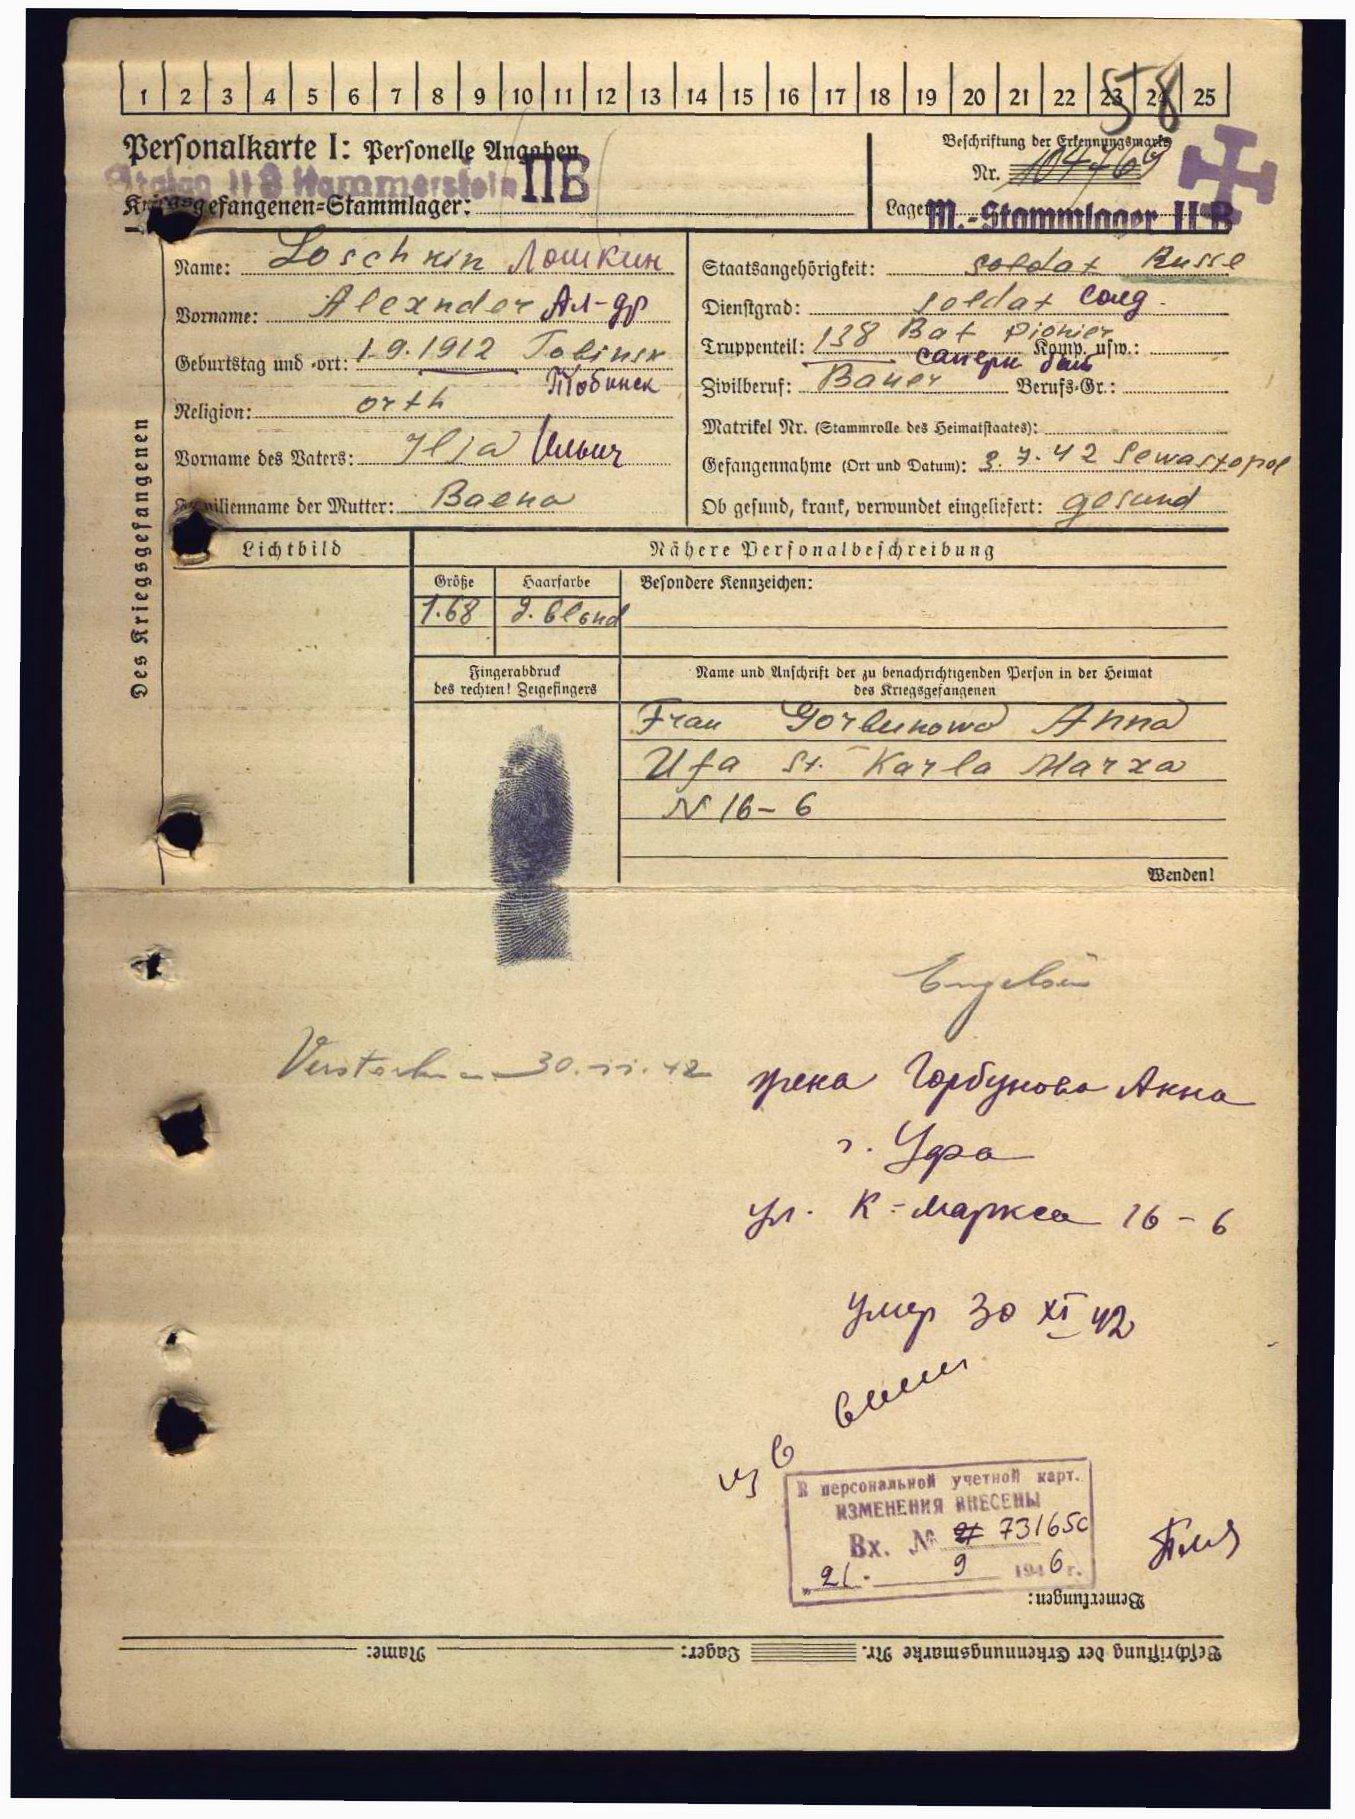 1 2 3 4 5 6 7 8 9 10 11 12 13 14 15 16 17 18 19 20 21 22 23 24 25
58
Personalkarte I: Personelle Angaben
Beschriftung der Erkennungsmarke
Nr. 104769
Stalag II B Hammerstein IIB
Kriegsgefangenen-Stammlager:
Lager: M.-Stammlager II B
Des Kriegsgefangenen
Name: Loschkin Лошкин
Vorname: Alexnder Ал-др
Geburtstag und -ort: 1.9.1912 Tobinsk
Тобинск
Religion: orth
Vorname des Vaters: Ilja Ильич
Familienname der Mutter: Baena
Staatsangehörigkeit: soldat Russe
Dienstgrad: soldat солд.
Truppenteil: 138 Bat pionier Komp. usw.:
саперн бат
Zivilberuf: Bauer Berufs-Gr.:
Matrikel Nr. (Stammrolle des Heimatstaates):
Gefangennahme (Ort und Datum): 3.7.42 Sewastopol
Ob gesund, krank, verwundet eingeliefert: gesund
Lichtbild
Nähere Personalbeschreibung
Größe Haarfarbe Besondere Kennzeichen:
1.68 d. blond
Fingerabdruck
des rechten! Zeigefingers
Name und Anschrift der zu benachrichtigenden Person in der Heimat
des Kriegsgefangenen
Frau Gorbunowa Anna
Ufa St. Karla Marxa
N 16-6
Wenden!
Verstorben 30.11.42
жена Горбунова Анна
г. Уфа
ул. К-Маркса 16-6
умер 30 XI 42
В персональной учетной карт.
ИЗМЕНЕНИЯ ВНЕСЕНЫ
Вх. № 73165с
„21. 9 1946 г.
Bemerkungen:
Beschriftung der Erkennungsmarke Nr. Lager: Name: